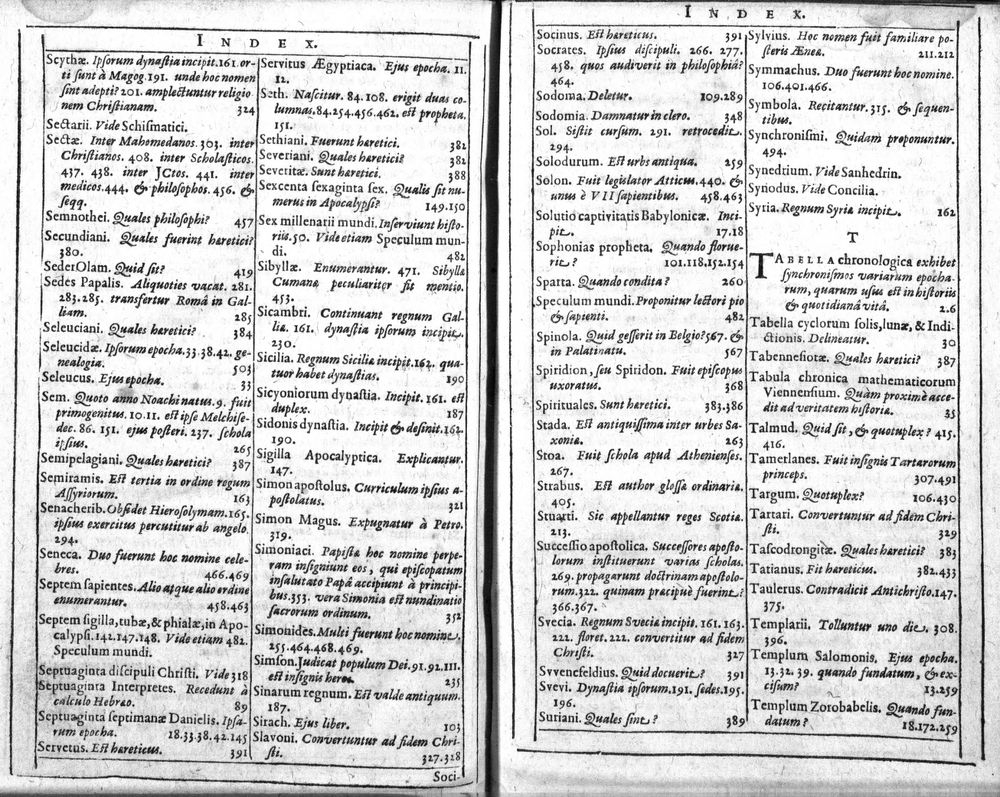 INDEX.
Scythæ. Ipsorum dynastia incipit. 161. or-
ti sunt à Magog. 191. unde hoc nomen
sint adepti? 201. amplectuntur religio
nem Christianam. 324
Sectarii. Vide Schismatici.
Sectæ. Inter Mahomedanos. 303. inter
Christianos. 408. inter Scholasticos.
437. 438. inter JCtos. 441. inter
medicos. 444. & philosophos. 456. &
seqq.
Semnothei. Quales philosophi? 457
Secundiani. Quales fuerint hæretici?
380.
Seder Olam. Quid sit? 419
Sedes Papalis. Aliquoties vacat. 281.
283. 285. transfertur Româ in Gal-
liam. 285
Seleuciani. Quales hæretici? 384
Seleucidæ. Ipsorum epocha. 33. 38. 42. ge-
nealogia. 503
Seleucus. Ejus epocha. 33
Sem. Quoto anno Noachi natus. 9. fuit
primogenitus. 10. 11. est ipse Melchise-
dec. 86. 151. ejus posteri. 237. schola
ipsius. 265
Semipelagiani. Quales hæretici? 387
Semiramis. Est tertia in ordine regum
Assyriorum. 163
Senacherib. Obsidet Hierosolymam. 165.
ipsius exercitus percutitur ab angelo.
294.
Seneca. Duo fuerunt hoc nomine cele-
bres. 466. 469
Septem sapientes. Alio atque alio ordine
enumerantur. 458. 463
Septem sigilla, tubæ, & phialæ, in Apo-
calypsi. 142. 147. 148. Vide etiam 482.
Speculum mundi.
Septuaginta discipuli Christi. Vide 318
Septuaginta Interpretes. Recedunt à
calculo Hebræo. 89
Septuaginta septimanæ Danielis. Ipsa-
rum epocha. 18. 33. 38. 42. 145
Servetus. Est hæreticus. 391
Servitus Ægyptiaca. Ejus epocha. 11.
12.
Seth. Nascitur. 84. 108. erigit duas co-
lumnas. 84. 254. 456. 462. est propheta.
151.
Sethiani. Fuerunt hæretici. 382
Severiani. Quales hæretici? 382
Severitæ. Sunt hæretici. 388
Sexcenta sexaginta sex. Qualis sit nu-
merus in Apocalypsi? 149. 150
Sex millenarii mundi. Inserviunt histo-
riis. 50. Vide etiam Speculum mun-
di. 482
Sibyllæ. Enumerantur. 471. Sibyllæ
Cumanæ peculiariter fit mentio.
453.
Sicambri. Continuant regnum Gal-
liæ. 161. dynastia ipsorum incipit.
230.
Sicilia. Regnum Siciliæ incipit. 162. qua-
tuor habet dynastias. 190
Sicyoniorum dynastia. Incipit. 161. est
duplex. 187
Sidonis dynastia. Incipit & desinit. 162.
190.
Sigilla Apocalyptica. Explicantur.
147.
Simon apostolus. Curriculum ipsius a-
postolatus. 321
Simon Magus. Expugnatur à Petro.
319.
Simoniaci. Papistæ hoc nomine perpe-
ram insigniunt eos, qui episcopatum
insalutato Papâ accipiunt à principi-
bus. 353. vera Simonia est nundinatio
sacrorum ordinum. 352
Simonides. Multi fuerunt hoc nomine.
255. 464. 468. 469.
Simson. Judicat populum Dei. 91. 92. 111.
est insignis heros. 235
Sinarum regnum. Est valde antiquum.
187.
Sirach. Ejus liber. 103
Slavoni. Convertuntur ad fidem Chri-
sti. 327. 328
Soci-
INDEX.
Socinus. Est hæreticus. 391
Socrates. Ipsius discipuli. 266. 277.
458. quos audiverit in philosophiâ?
464.
Sodoma. Deletur. 109. 289
Sodomia. Damnatur in clero. 348
Sol. Sistit cursum. 291. retrocedit.
294.
Solodurum. Est urbs antiqua. 259
Solon. Fuit legislator Atticus. 440. &
unus è VII sapientibus. 458. 463
Solutio captivitatis Babylonicæ. Inci-
pit. 17. 18
Sophonias propheta. Quando florue-
rit? 101. 118. 152. 154
Sparta. Quando condita? 260
Speculum mundi. Proponitur lectori pio
& sapienti. 482
Spinola. Quid gesserit in Belgio? 567. &
in Palatinatu. 567
Spiridion, seu Spiridon. Fuit episcopus
uxoratus. 368
Spirituales. Sunt hæretici. 383. 386
Stada. Est antiquissima inter urbes Sa-
xoniæ. 263
Stoa. Fuit schola apud Athenienses.
267.
Strabus. Est author glossæ ordinariæ.
405.
Stuarti. Sic appellantur reges Scotiæ.
213.
Successio apostolica. Successores aposto-
lorum instituerunt varias scholas.
269. propagarunt doctrinam apostolo-
rum. 322. quinam præcipuè fuerint?
366. 367.
Svecia. Regnum Sveciæ incipit. 161. 163.
222. floret. 222. convertitur ad fidem
Christi. 327
Svvenckfeldius. Quid docuerit? 391
Svevi. Dynastia ipsorum. 191. sedes. 195.
196.
Suriani. Quales sint? 389
Sylvius. Hoc nomen fuit familiare po-
steris Æneæ. 211. 212
Symmachus. Duo fuerunt hoc nomine.
106. 401. 466.
Symbola. Recitantur. 315. & sequen-
tibus.
Synchronismi. Quidam proponuntur.
494.
Synedrium. Vide Sanhedrin.
Synodus. Vide Concilia.
Syria. Regnum Syriæ incipit. 162
T
TABELLA chronologica exhibet
synchronismos variarum epocha-
rum, quarum usus est in historiis
& quotidianâ vitâ. 2. 6
Tabella cyclorum solis, lunæ, & Indi-
ctionis. Delineatur. 30
Tabennesiotæ. Quales hæretici? 387
Tabula chronica mathematicorum
Viennensium. Quàm proximè acce-
dit ad veritatem historiæ. 35
Talmud. Quid sit, & quotuplex? 415.
416.
Tamerlanes. Fuit insignis Tartarorum
princeps. 307. 491
Targum. Quotuplex? 106. 430
Tartari. Convertuntur ad fidem Chri-
sti. 329
Tascodrongitæ. Quales hæretici? 383
Tatianus. Fit hæreticus. 382. 433
Taulerus. Contradicit Antichristo. 147.
375.
Templarii. Tolluntur uno die. 308.
396.
Templum Salomonis. Ejus epocha.
13. 32. 39. quando fundatum, & ex-
cisum? 13. 259
Templum Zorobabelis. Quando fun-
datum? 18. 172. 259